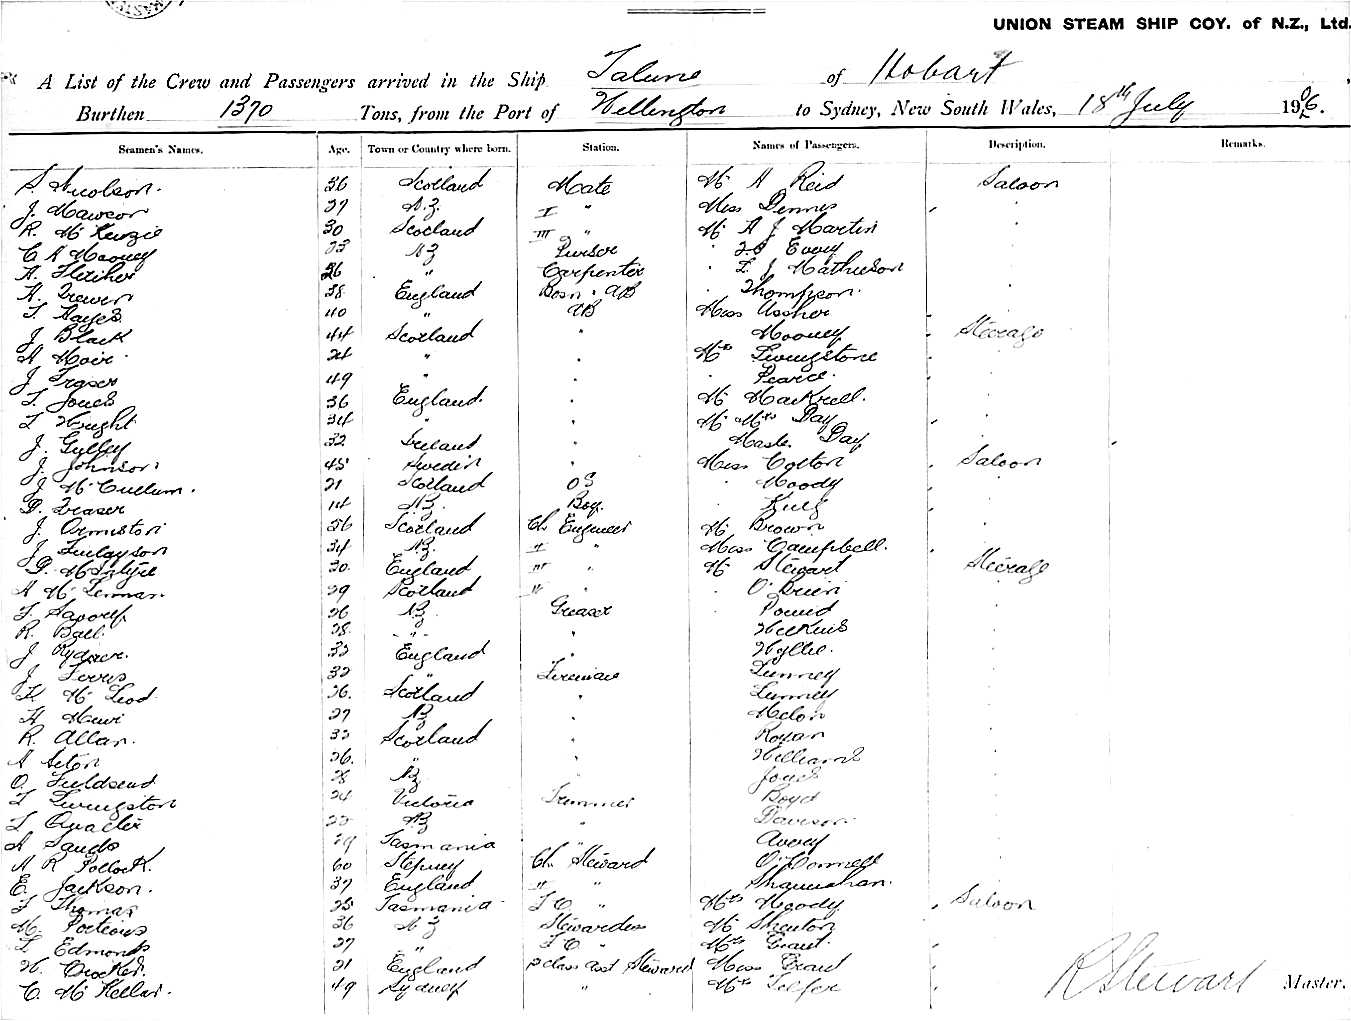 UNION STEAM SHIP COY. of N.Z., Ltd.
A List of the Crew and Passengers arrived in the Ship Talune of Hobart
Burthen 1370 Tons, from the Port of Wellington to Sydney, New South Wales, 18th July 1906.
Seamen's Names. Age. Town or Country where born. Station. Names of Passengers. Description. Remarks.
S. Nicolson. 36 Scotland Mate Mr A Reid Saloon
J. Mawson 27 N.Z. II " Miss Dennis
R. McKenzie 30 Scotland III " Mr A J Martin
C A Mooney 23 NZ Purser
A. Fletcher 26 " Carpenter F. J Mathieson
38 England Bosn & AB Thompson
T. Hayes 40 " AB Miss Assher
J Black 44 Scotland Mooney Steerage
A Moir 24 " Mrs Livingstone
J Fraser 49 " Pearce
T. Jones 36 England Mr Mackrell.
T Wright 34 " Mr Mrs Day
J. Gulley 32 Ireland Master Day
J. Johnson 45 Sweden Miss Colton Saloon
J McCullum. 21 Scotland OS Moody
D. Fraser 14 NZ. Boy.
J. Ormiston 36 Scotland Ch Engineer Mr Brown
J Finlayson 34 NZ. II " Miss Campbell.
D. McIntyre 30. England III " Mr Stewart Steerage
A McLennan 29 Scotland " O'Brien
T. 26 NZ Greaser Pound
R. Ball 28. " Wilkins
J 33 England Wyllie.
J Ferris 32 " Fireman Lunney
McLeod 26. Scotland Lunney
H 27 NZ
R. Allan. 33 Scotland
A Seton 26. " Williams
O. Fieldsend 28 NZ Jones
T Livingston 24 Victoria Trimmer Boyd
22 NZ " Davison
A Sands 19 Tasmania " Avery
A R Pollock. 60 Stepney Ch. Steward O'Donnell
E. Jackson. 37 England II " Shanahan.
T Thomas 25 Tasmania " Mrs Moody Saloon
M. Porteous 36 NZ Stewardess Mr Shenton
T. Edmonds 27 " " Mrs Grant
W. Crocker. 21 England 2 class asst Steward Miss Grant
C. McKellar. 49 Sydney " Mrs Telfer
R Stewart Master.